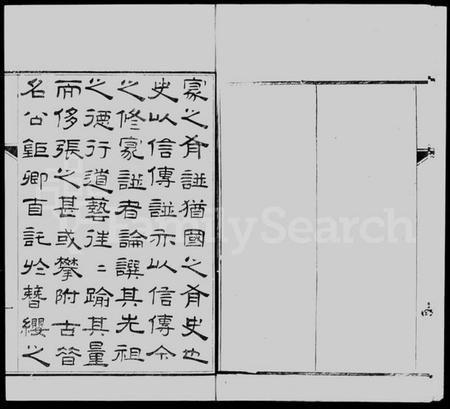 家之有譜猶國之有史也
史以信傳譜亦以信傳今
之修家譜者論譔其先祖
之德行道藝往〻踰其量
而侈張之甚或攀附古昔
名公鉅卿自託於簪纓之
FamilySearch